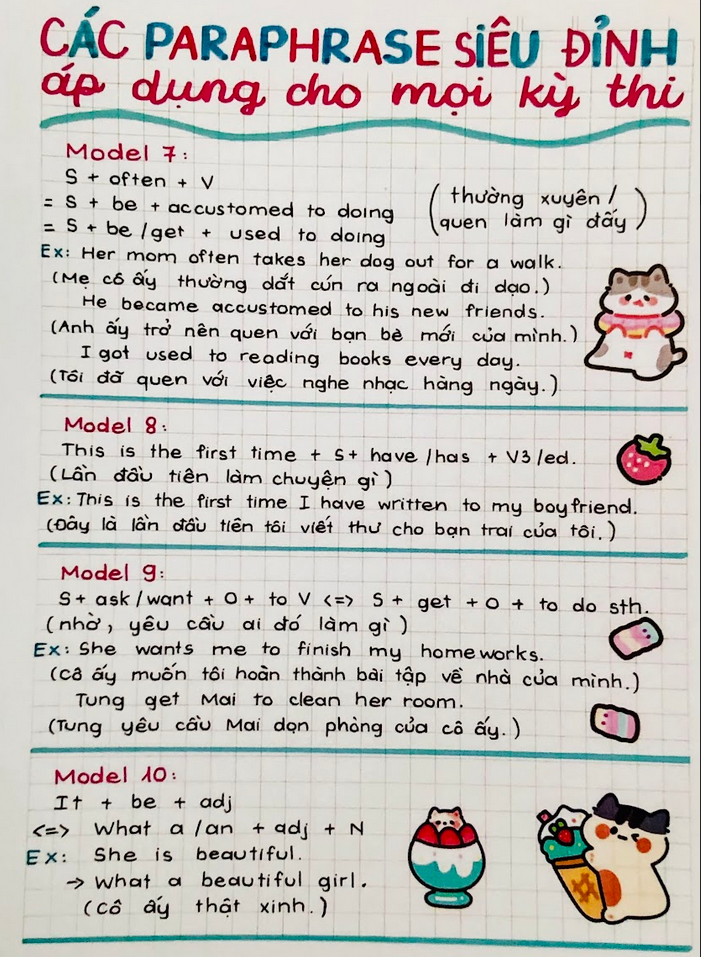 CÁC PARAPHRASE SIÊU ĐỈNH
áp dụng cho mọi kỳ thi
Model 7:
S + often + V
= S + be + accustomed to doing
= S + be/get + used to doing
(thường xuyên/
quen làm gì đấy)
Ex: Her mom often takes her dog out for a walk.
(Mẹ cô ấy thường dắt cún ra ngoài đi dạo.)
He became accustomed to his new friends.
(Anh ấy trở nên quen với bạn bè mới của mình.)
I got used to reading books every day.
(Tôi đã quen với việc nghe nhạc hàng ngày.)
Model 8:
This is the first time + S+ have/has + V3/ed.
(Lần đầu tiên làm chuyện gì)
Ex: This is the first time I have written to my boyfriend.
(Đây là lần đầu tiên tôi viết thư cho bạn trai của tôi.)
Model 9:
S+ ask/want + O + to V <=> S + get + O + to do sth.
(nhờ, yêu cầu ai đó làm gì)
Ex: She wants me to finish my homeworks.
(Cô ấy muốn tôi hoàn thành bài tập về nhà của mình.)
Tung get Mai to clean her room.
(Tung yêu cầu Mai dọn phòng của cô ấy.)
Model 10:
It + be + adj
<=> What a/an + adj + N
Ex: She is beautiful.
→ What a beautiful girl.
(Cô ấy thật xinh.)